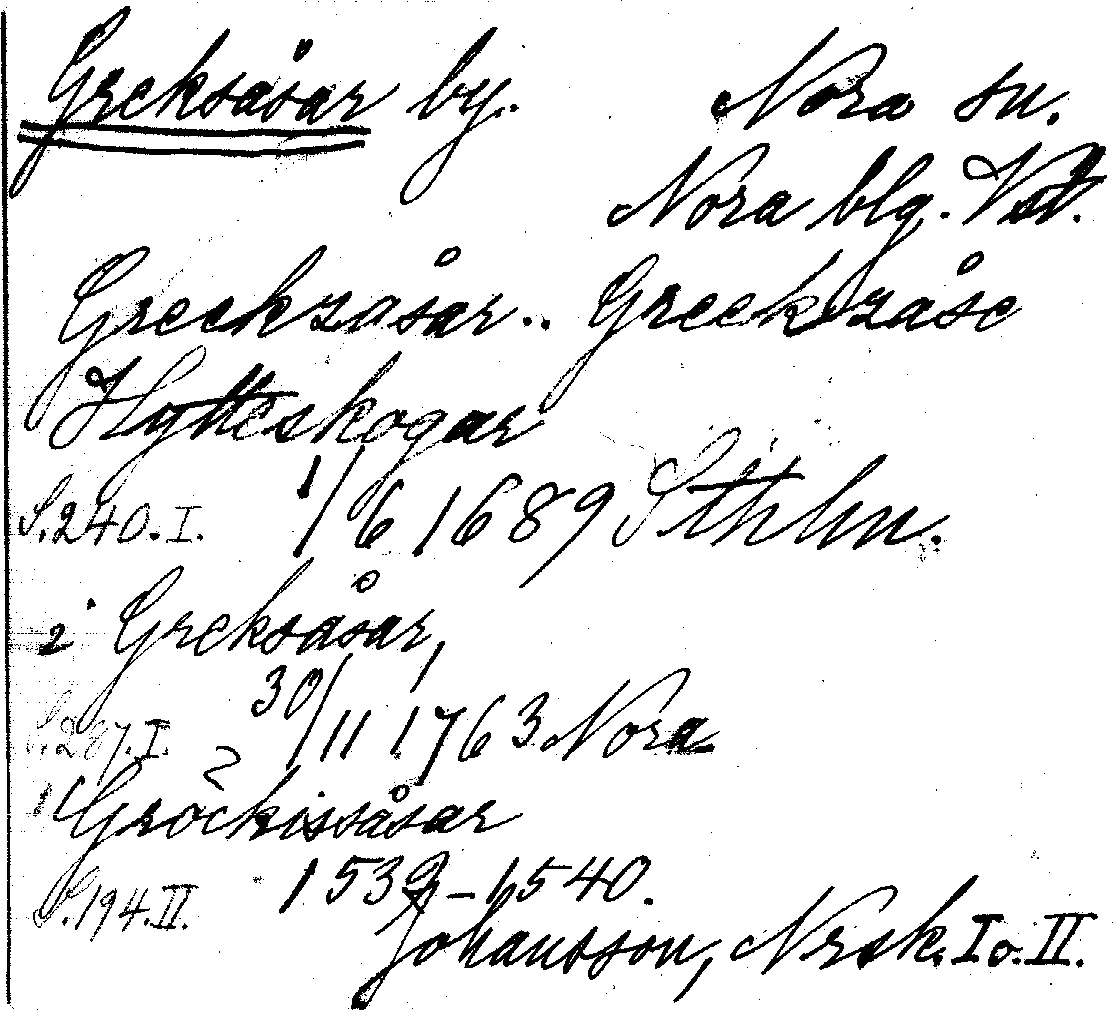 Greksåsar by. Nora sn.
Nora blg. Vstl.
Greekzåsår.. Greekzåse
Hytteskogar
S.240.I. 1/6 1689 Sthlm.
i Greksåsår,
2
S.287.I. 30/11 1763 Nora
Gröckissåsar
S.194.II. 1539-1540.
Johansson, Nrsk. I o. II.